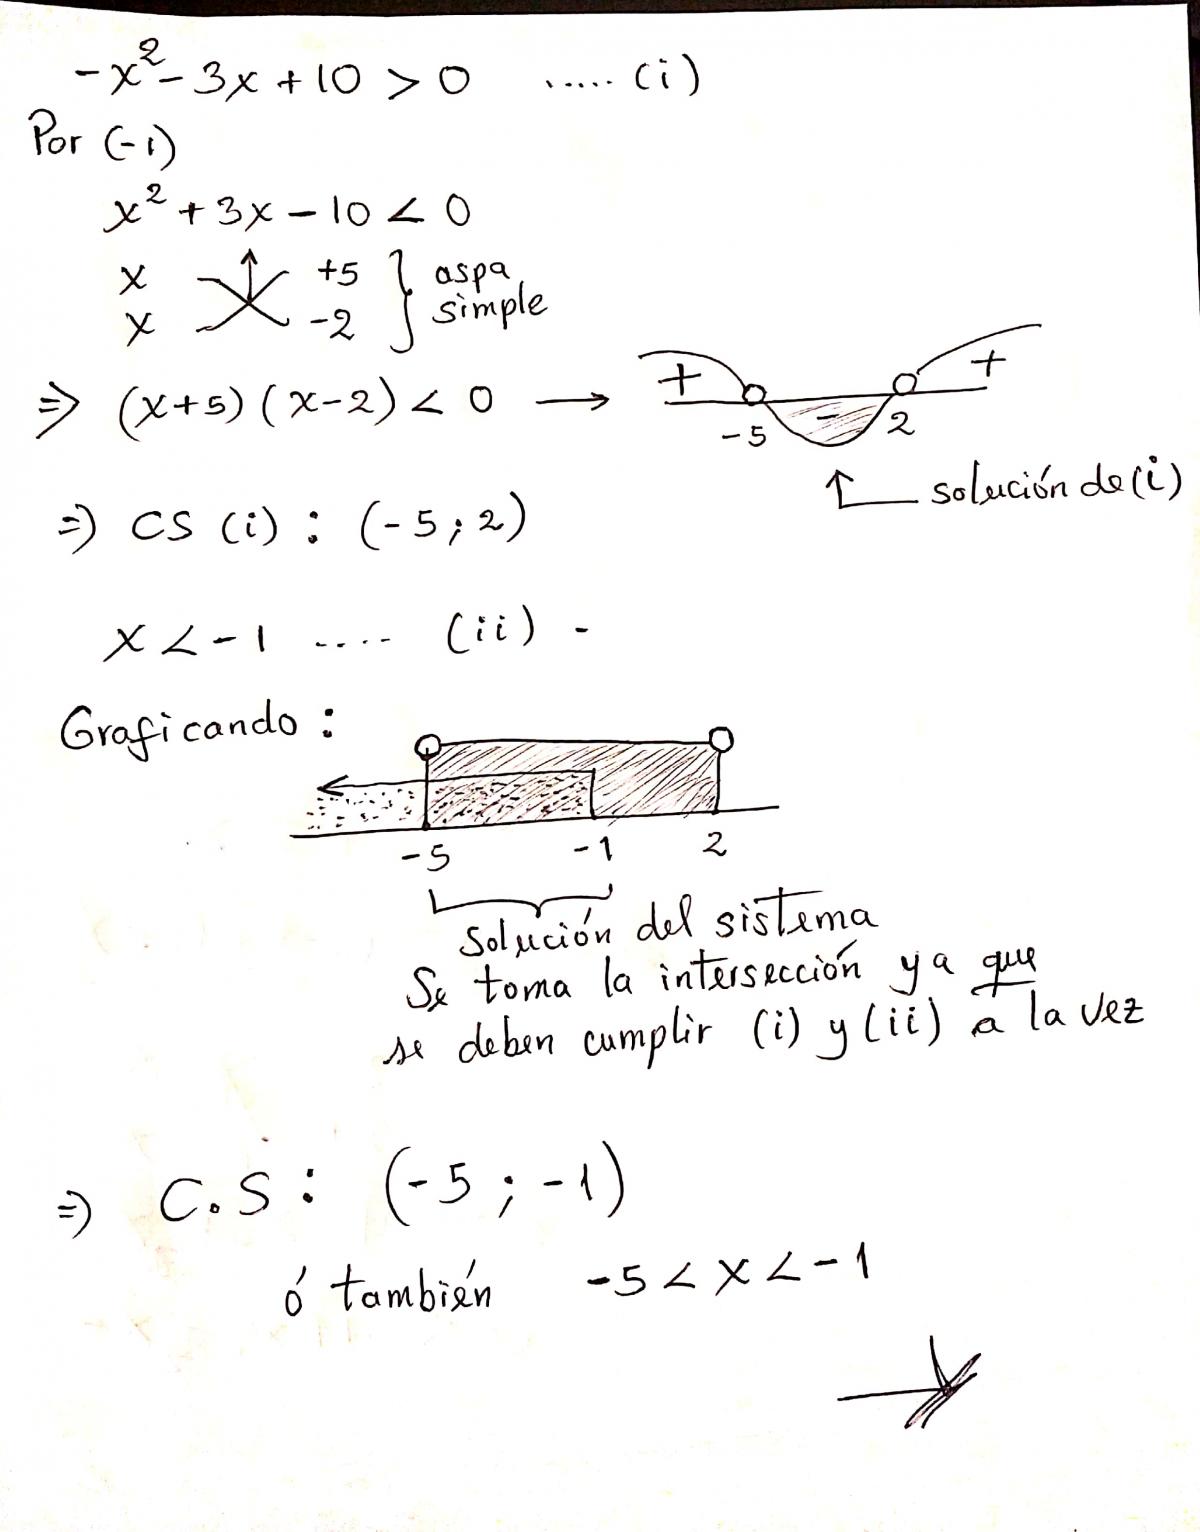 -x² - 3x + 10 > 0 ..... (i)
Por (-1)
x² + 3x - 10 < 0
x +5
x -2
aspa
simple
⇒ (x+5) (x-2) < 0 → + - +
-5 2
solución de (i)
⇒ CS (i) : (-5 ; 2)
x < -1 .... (ii) -
Graficando :
-5 -1 2
Solución del sistema
Se toma la intersección ya que
se deben cumplir (i) y (ii) a la vez
⇒ C.S : (-5 ; -1)
ó también -5 < x < -1